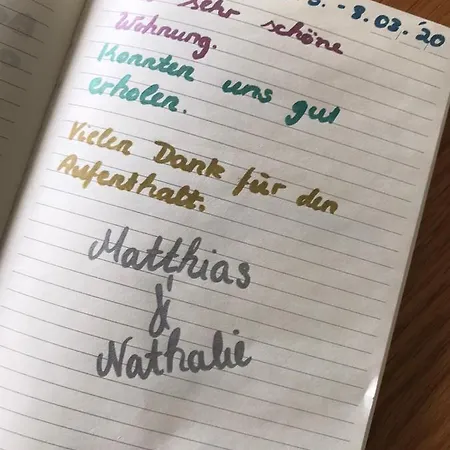 3. - 8.03.'20
sehr schöne
Wohnung.
Konnten uns gut
erholen.
Vielen Dank für den
Aufenthalt.
Matthias
&
Nathalie